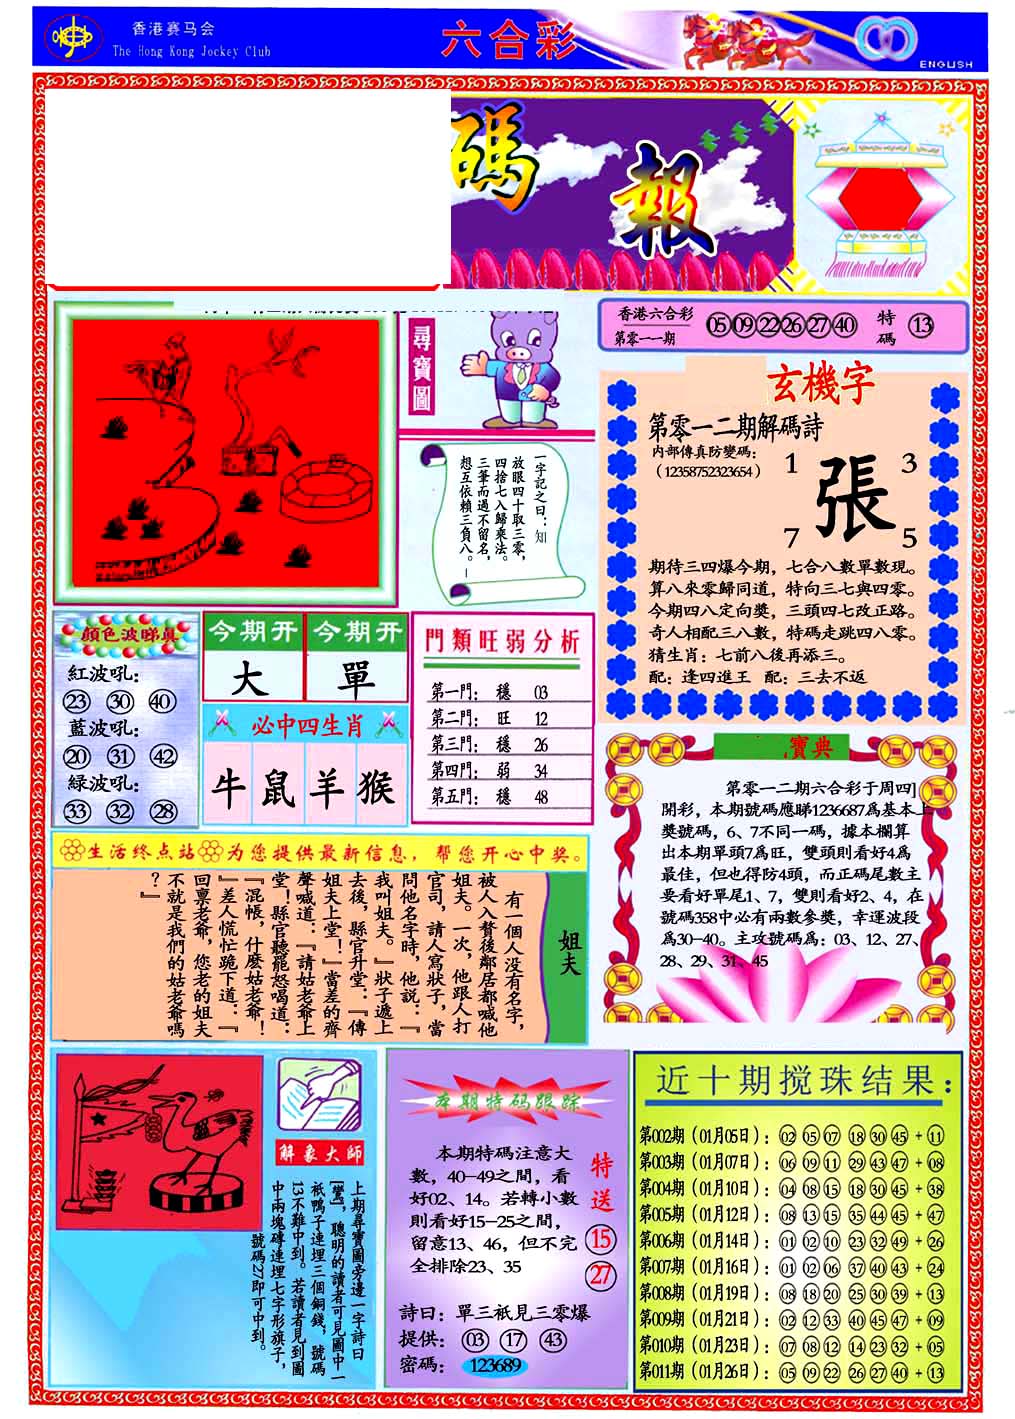 香港赛马会
The Hong Kong Jockey Club
六合彩
ENGLISH
碼報
尋寶圖
香港六合彩
第零一一期
05 09 22 26 27 40 特碼 13
一字記之曰：知
放眼四十取三零，
四捨七入歸乘法。
三筆而過不留名，
想互依賴三負八。
玄機字
第零一二期解碼詩
内部傳真防變碼：
（12358752323654）
1 3
張
7 5
期待三四爆今期，七合八數單數現。
算八來零歸同道，特向三七與四零。
今期四八定向獎，三頭四七改正路。
奇人相配三八數，特碼走跳四八零。
猜生肖：七前八後再添三。
配：逢四進王 配：三去不返
顔色波睇真
紅波吼：
23 30 40
藍波吼：
20 31 42
緑波吼：
33 32 28
今期开 今期开
大 單
必中四生肖
牛 鼠 羊 猴
門類旺弱分析
第一門： 穩 03
第二門： 旺 12
第三門： 穩 26
第四門： 弱 34
第五門： 穩 48
寶典
第零一二期六合彩于周四]
開彩，本期號碼應睇1236687爲基本上
獎號碼，6、7不同一碼，據本欄算
出本期單頭7爲旺，雙頭則看好4爲
最佳，但也得防4頭，而正碼尾數主
要看好單尾1、7，雙則看好2、4，在
號碼358中必有兩數參獎，幸運波段
爲30-40。主攻號碼爲：03、12、27、
28、29、31、45
生活终点站 为您提供最新信息，帮您开心中奖。
姐夫
有一個人没有名字，
被人入贅後鄰居都喊他
姐夫。一次，他跟人打
官司，請人寫狀子，當
問他名字時，他説：『
我叫姐夫。』狀子遞上
去後，縣官升堂：『傳
姐夫上堂！』當差的齊
聲喊道：『請姑老爺上
堂！縣官聽罷怒喝道：
『混帳，什麽姑老爺！
』差人慌忙跪下道：『
回禀老爺，您老的姐夫
不就是我們的姑老爺嗎
？』
解象大師
上期尋寶圖旁邊一字詩曰
[鸞]，聰明的讀者可見圖中一
衹鴨子連埋三個銅錢，號碼
13不難中到。若讀者見到圖
中兩塊磚連埋七字形旗子，
號碼27即可中到。
本期特码跟踪
本期特碼注意大
數，40-49之間，看
好02、14。若轉小數
則看好15-25之間，
留意13、46，但不完
全排除23、35
特送
15
27
詩曰：單三衹見三零爆
提供： 03 17 43
密碼： 123689
近十期搅珠结果：
第002期（01月05日）：02 05 07 18 30 45 + 11
第003期（01月07日）：06 09 11 29 43 47 + 08
第004期（01月10日）：04 08 15 18 30 45 + 38
第005期（01月12日）：08 13 15 35 44 45 + 47
第006期（01月14日）：01 02 10 23 32 49 + 26
第007期（01月16日）：01 02 06 37 40 43 + 24
第008期（01月19日）：08 18 20 25 30 39 + 13
第009期（01月21日）：02 12 33 40 45 47 + 09
第010期（01月23日）：07 08 12 14 23 32 + 05
第011期（01月26日）：05 09 22 26 27 40 + 13